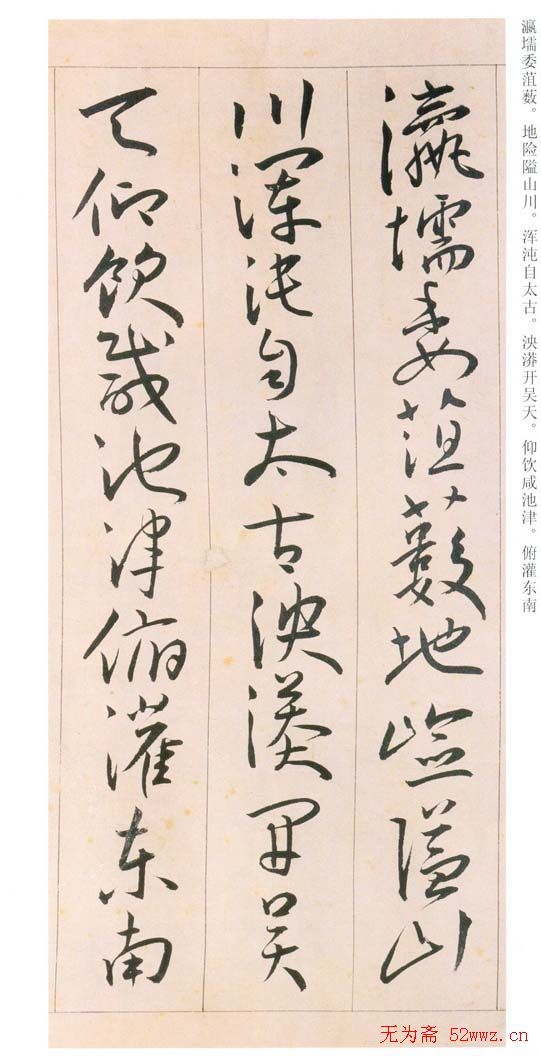 瀛壖委菹薮。地险隘山川。浑沌自太古。泱漭开吴天。仰饮咸池津。俯灌东南
瀛壖委菹薮地崄隘山
川浑沌自太古泱漭开吴
天仰饮咸池津俯灌东南
无为斋 52wwz.cn